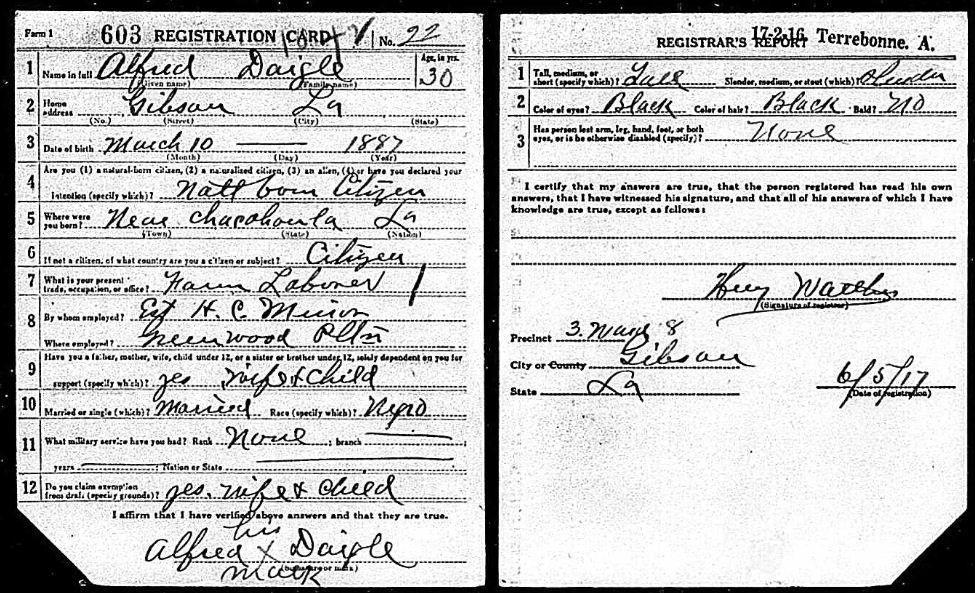 Form 1 603 REGISTRATION CARD No. 22
1 Name in full Alfred Daigle Age, in yrs. 30
(Given name) (Family name)
2 Home address Gibson La
(No.) (Street) (City) (State)
3 Date of birth March 10 1887
(Month) (Day) (Year)
4 Are you (1) a natural-born citizen, (2) a naturalized citizen, (3) an alien, (4) or have you declared your
intention (specify which)? Natl born Citizen
5 Where were you born? Near Chacahoula La
(Town) (State) (Nation)
6 If not a citizen, of what country are you a citizen or subject? Citizen
7 What is your present trade, occupation, or office? Farm Laborer
8 By whom employed? Est H. C. Minor
Where employed? Greenwood Pltn
9 Have you a father, mother, wife, child under 12, or a sister or brother under 12, solely dependent on you for
support (specify which)? yes wife & child
10 Married or single (which)? Married Race (specify which)? Negro
11 What military service have you had? Rank None ; branch ;
years ; Nation or State
12 Do you claim exemption from draft (specify grounds)? yes. wife & child
I affirm that I have verified above answers and that they are true.
his
Alfred X Daigle
mark
(Signature or mark)
17-2-16 Terrebonne. A.
REGISTRAR'S REPORT
1 Tall, medium, or short (specify which)? Tall Slender, medium, or stout (which)? Slender
2 Color of eyes? Black Color of hair? Black Bald? No
3 Has person lost arm, leg, hand, foot, or both eyes, or is he otherwise disabled (specify)? None
I certify that my answers are true, that the person registered has read his own
answers, that I have witnessed his signature, and that all of his answers of which I have
knowledge are true, except as follows:
(Signature of registrar)
Precinct 3. Ward 8
City or County Gibson
State La
6/5/17
(Date of registration)